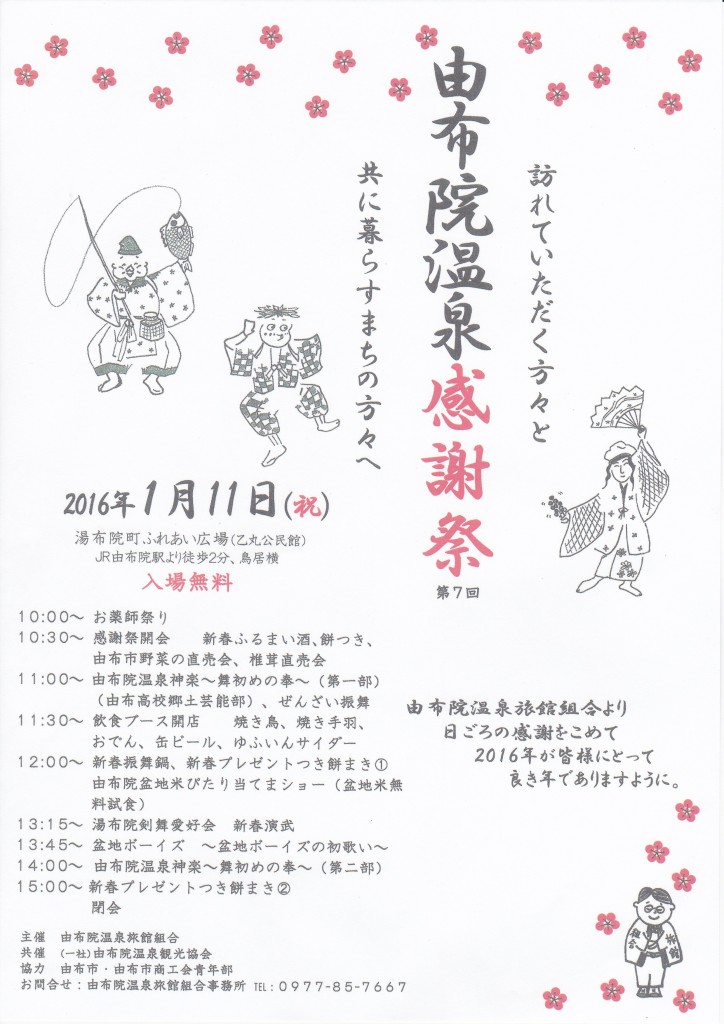 訪れていただく方々と
由布院温泉感謝祭
第7回
共に暮らすまちの方々へ
2016年1月11日(祝)
湯布院町ふれあい広場(乙丸公民館)
JR由布院駅より徒歩2分、鳥居横
入場無料
10:00〜 お薬師祭り
10:30〜 感謝祭開会 新春ふるまい酒、餅つき、
由布市野菜の直売会、椎茸直売会
11:00〜 由布院温泉神楽〜舞初めの奉〜(第一部)
(由布高校郷土芸能部)、ぜんざい振舞
11:30〜 飲食ブース開店 焼き鳥、焼き手羽、
おでん、缶ビール、ゆふいんサイダー
12:00〜 新春振舞鍋、新春プレゼントつき餅まき①
由布院盆地米ぴたり当てまショー(盆地米無
料試食)
13:15〜 湯布院剣舞愛好会 新春演武
13:45〜 盆地ボーイズ 〜盆地ボーイズの初歌い〜
14:00〜 由布院温泉神楽〜舞初めの奉〜(第二部)
15:00〜 新春プレゼントつき餅まき②
閉会
由布院温泉旅館組合より
日ごろの感謝をこめて
2016年が皆様にとって
良き年でありますように。
主催 由布院温泉旅館組合
共催 (一社)由布院温泉観光協会
協力 由布市・由布市商工会青年部
お問合せ:由布院温泉旅館組合事務所 TEL:0977-85-7667
旅館
組合